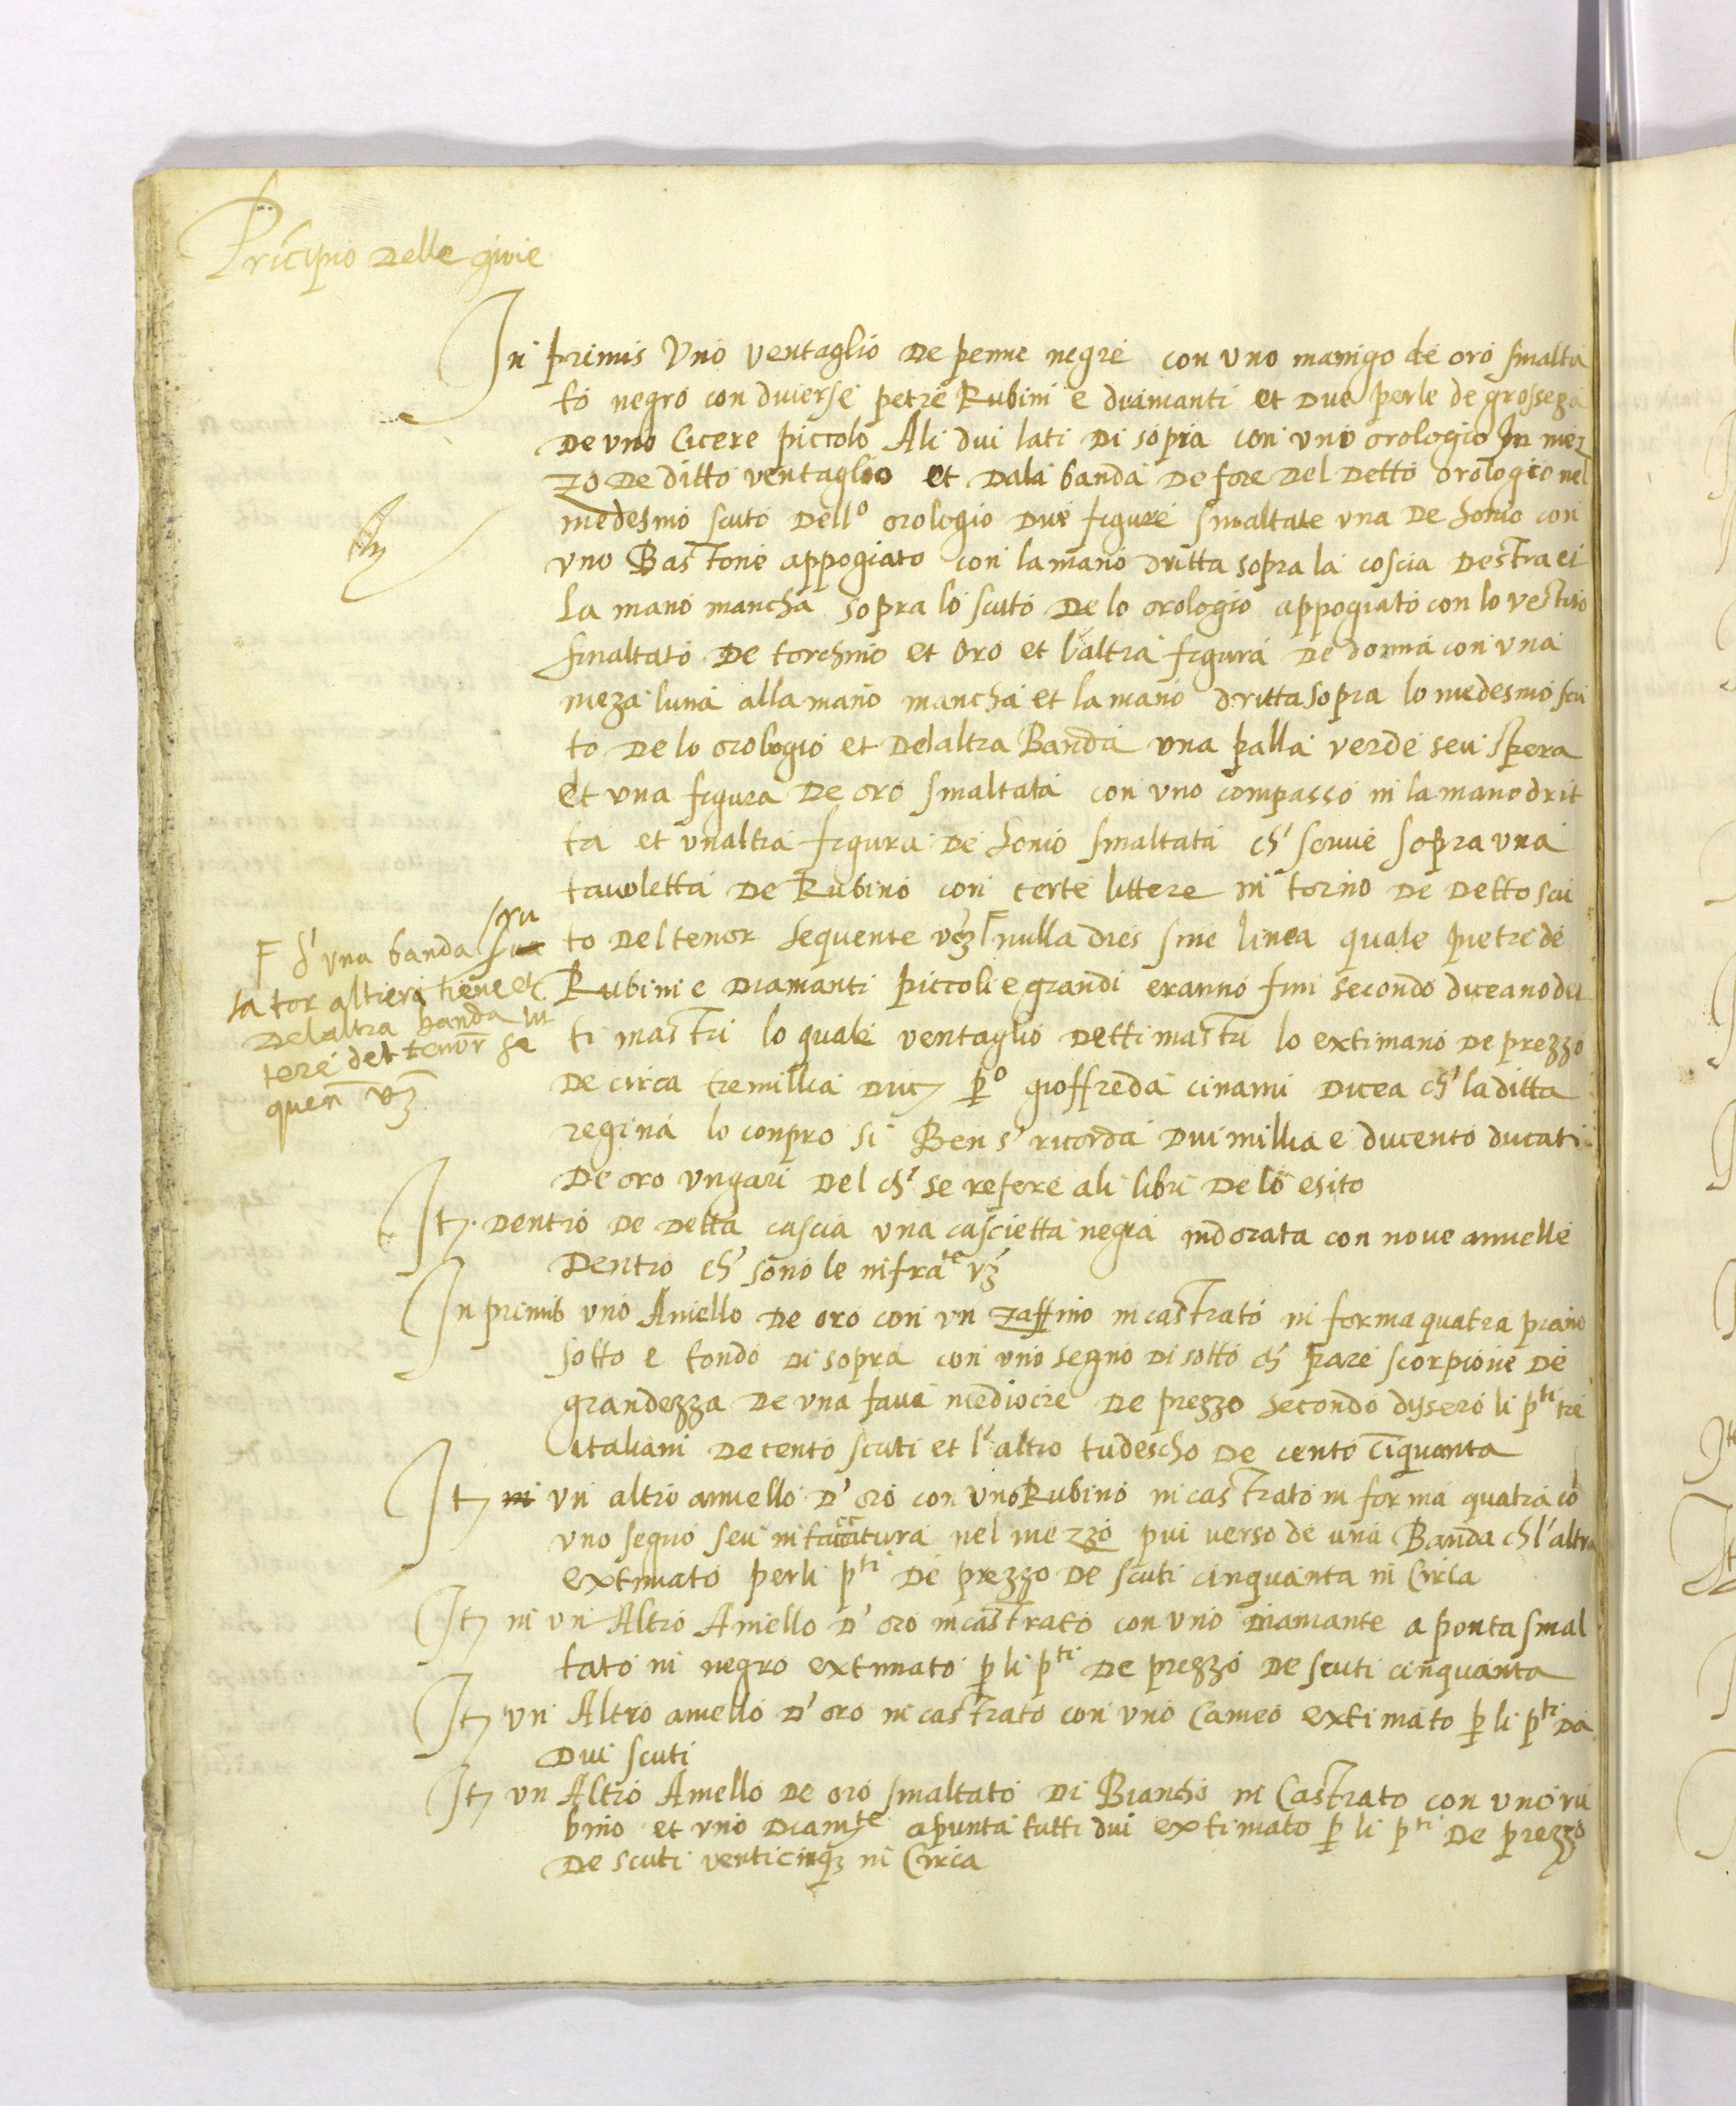 Principio delle gioie
In primis Uno ventaglio de penne negre con uno manigo de oro smalta
to negro con diverse petre Rubini e diamanti et due perle de grosseza
de uno Cicere piccolo Ali dui lati di sopra con uno orologio In mez
zo de ditto ventaglio et dala banda de fore del detto orologio nel
medesmo scuto dello orologio due figure smaltate una de homo con
uno Bastone appogiato con la mano dritta sopra la coscia destra et
la mano mancha sopra lo scuto de lo orologio appogiato con lo vestito
smaltato de torchino et oro et l'altra figura de donna con una
meza luna alla mano mancha et la mano dritta sopra lo medesmo scu
to de lo orologio et delaltra Banda una palla verde seu spera
et una figura de oro smaltata con uno compasso in la mano drit
ta et unaltra figura de homo smaltata ch' scrive sopra una
tavoletta de Rubino con certe littere in torno de detto scu
to del tenor sequente vz nulla dies sine linea quale pietre de
Rubini e diamanti piccoli e grandi eranno fini secondo diceano det
ti mastri lo quale ventaglio detti mastri lo extimano de prezzo
de circa tremillia duc. po gioffreda cinami dicea ch' la ditta
regina lo conpro si Ben s' ricorda dui millia e ducento ducati
de oro ungari del ch' se refere ali libri de lo esito
F d' una banda scu
la tor altiera tiene et
delaltra banda lit
tere del tenor se
quen vz
It. dentro de detta cascia una cascietta negra indorata con nove annelle
dentro ch' sono le infratte vz
In primis uno Aniello de oro con un zaffino incastrato in forma quatra piano
sotto e tondo di sopra con uno segno di sotto ch' pare scorpione de
grandezza de una fava mediocre de prezzo secondo dissero li pti tre
italiani de cento scuti et l'altro tudescho de cento cinquanta
It. in un altro annello d'oro con uno Rubino incastrato in forma quatra co
uno segno seu intaccatura nel mezzo piu verso de una Banda ch l'altra
extimato per li pti de prezzo de scuti cinquanta in Circa
It. in un Altro Aniello d'oro incastrato con uno diamante a ponta smal
tato in negro extimato p li pti de prezzo de scuti cinquanta
It. un Altro anello d'oro incastrato con uno Cameo extimato p li pti da
dui scuti
It. un Altro Anello de oro smaltato di Biancho in Castrato con uno ru
bino et uno diamte a punta tutti dui extimato p li pti de prezzo
de scuti venticinq; in Circa